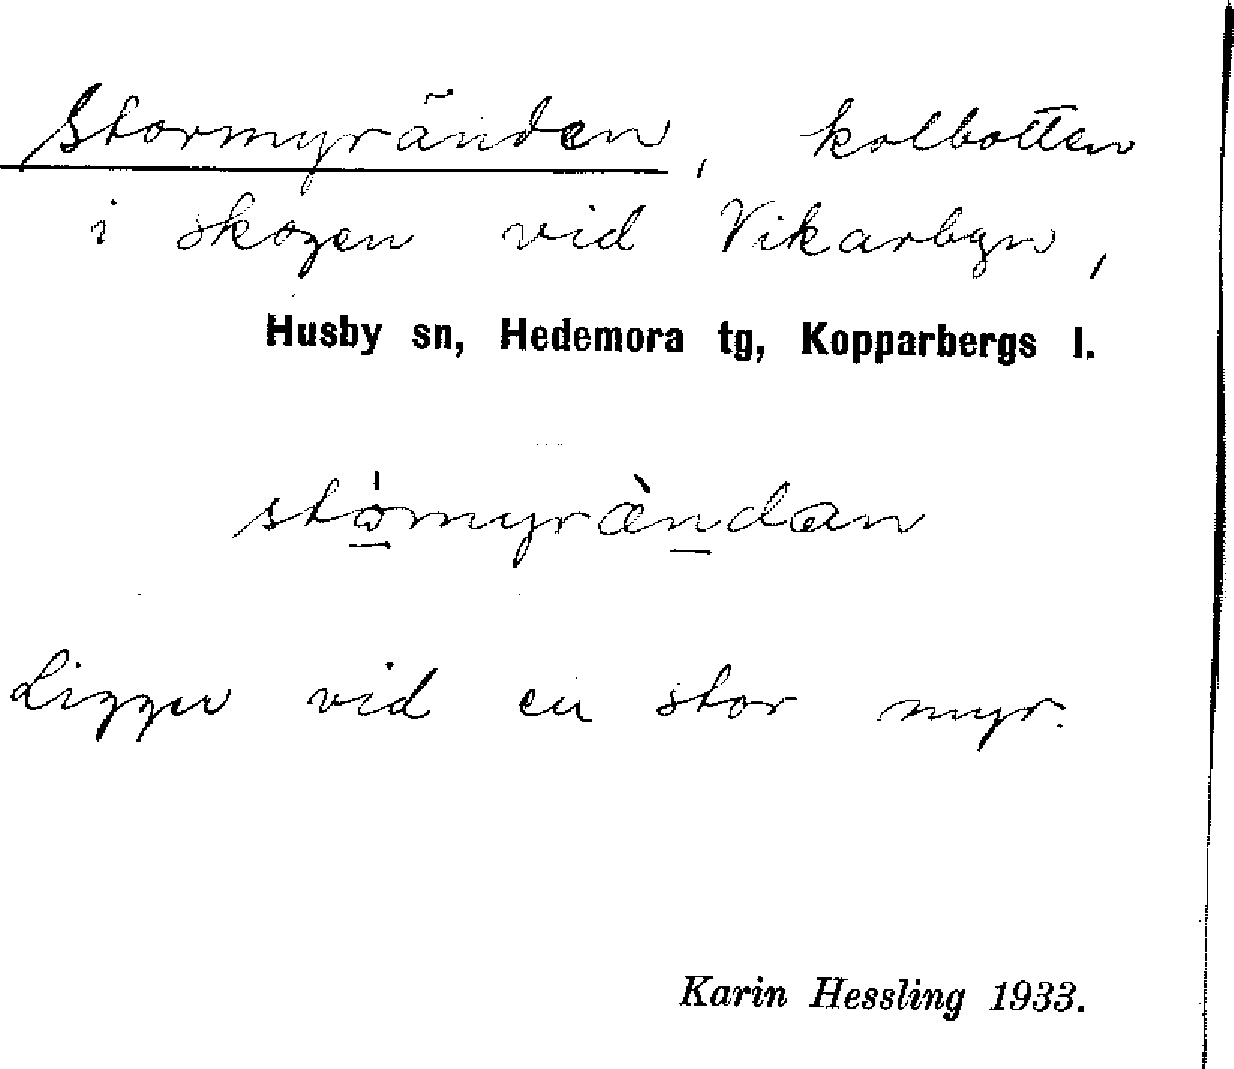 Stormyränden, kolbotten
i skogen vid Vikarbyn,
Husby sn, Hedemora tg, Kopparbergs l.
stǫ̍myræ̀ṉdan
Ligger vid en stor myr.
Karin Hessling 1933.